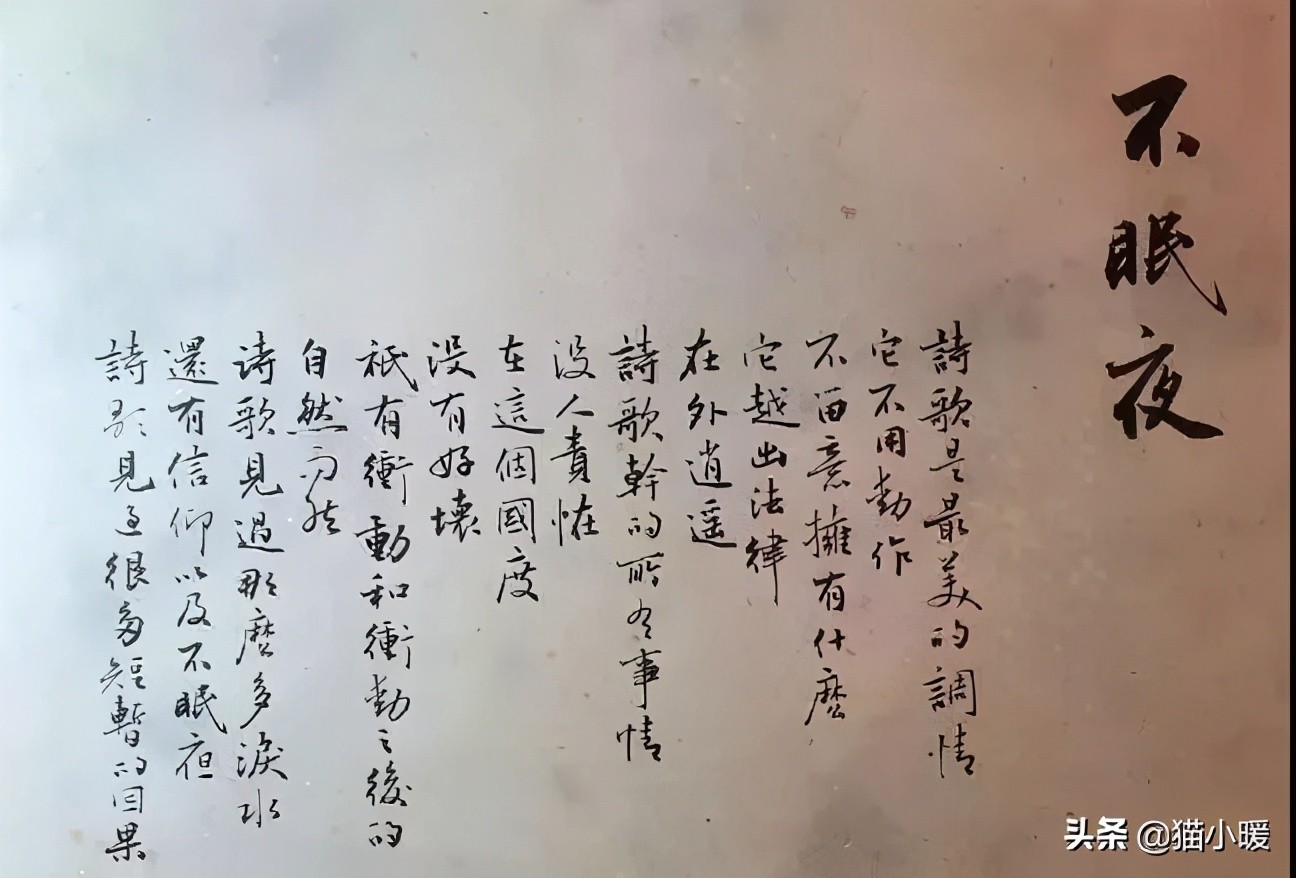 不眠夜
詩歌是最美的調情
它不用動作
不留意擁有什麽
它越出法律
在外逍遥
詩歌幹的所有事情
没人責怪
在這個國度
没有好壞
祇有衝動和衝動之後的
自然而然
诗歌見過那麽多淚水
還有信仰以及不眠夜
詩歌見過很多短暫的因果
头条 @猫小暖